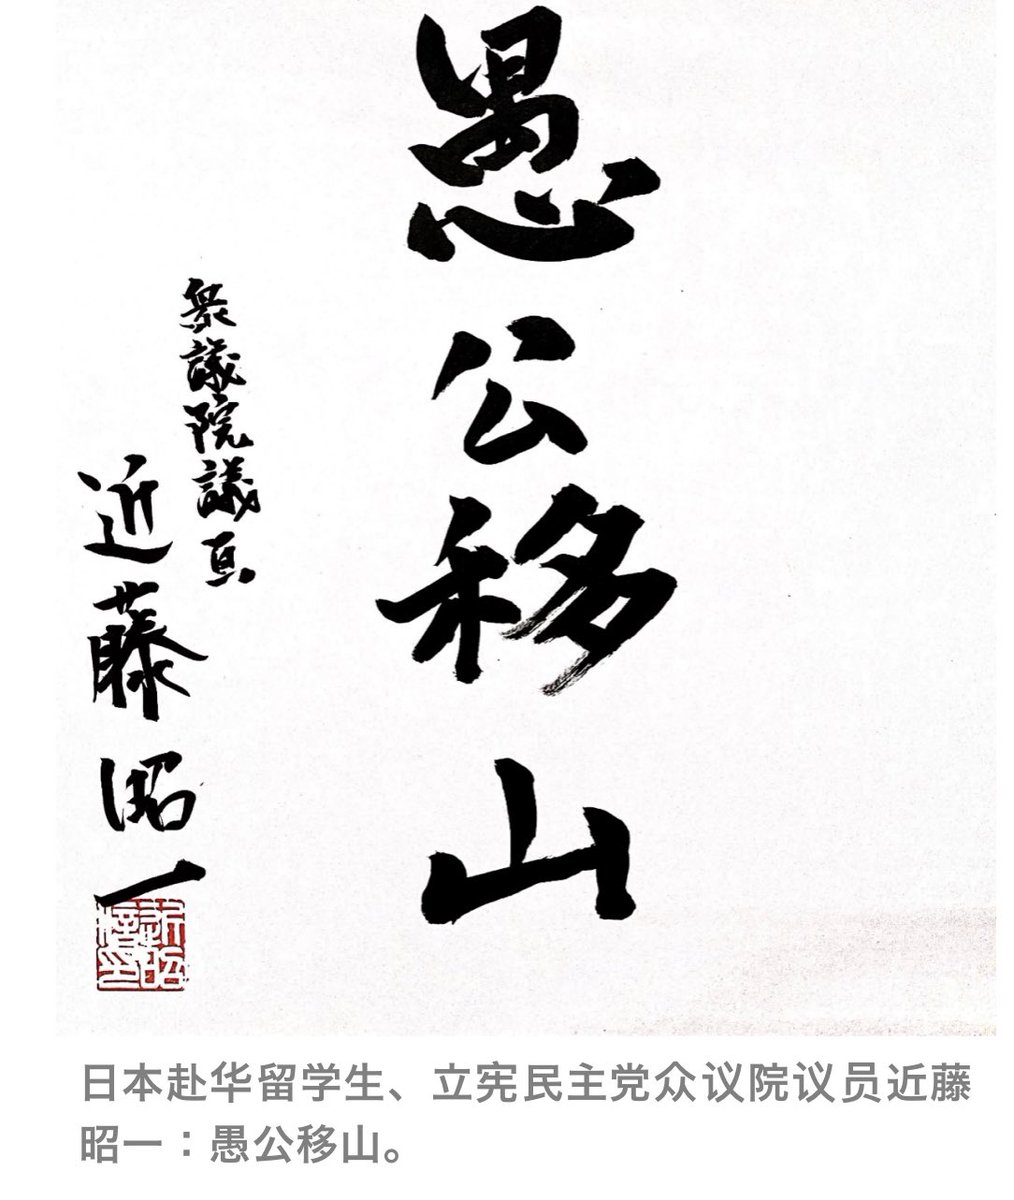 愚公移山
衆議院議員
近藤昭一
日本赴华留学生、立宪民主党众议院议员近藤
昭一：愚公移山。